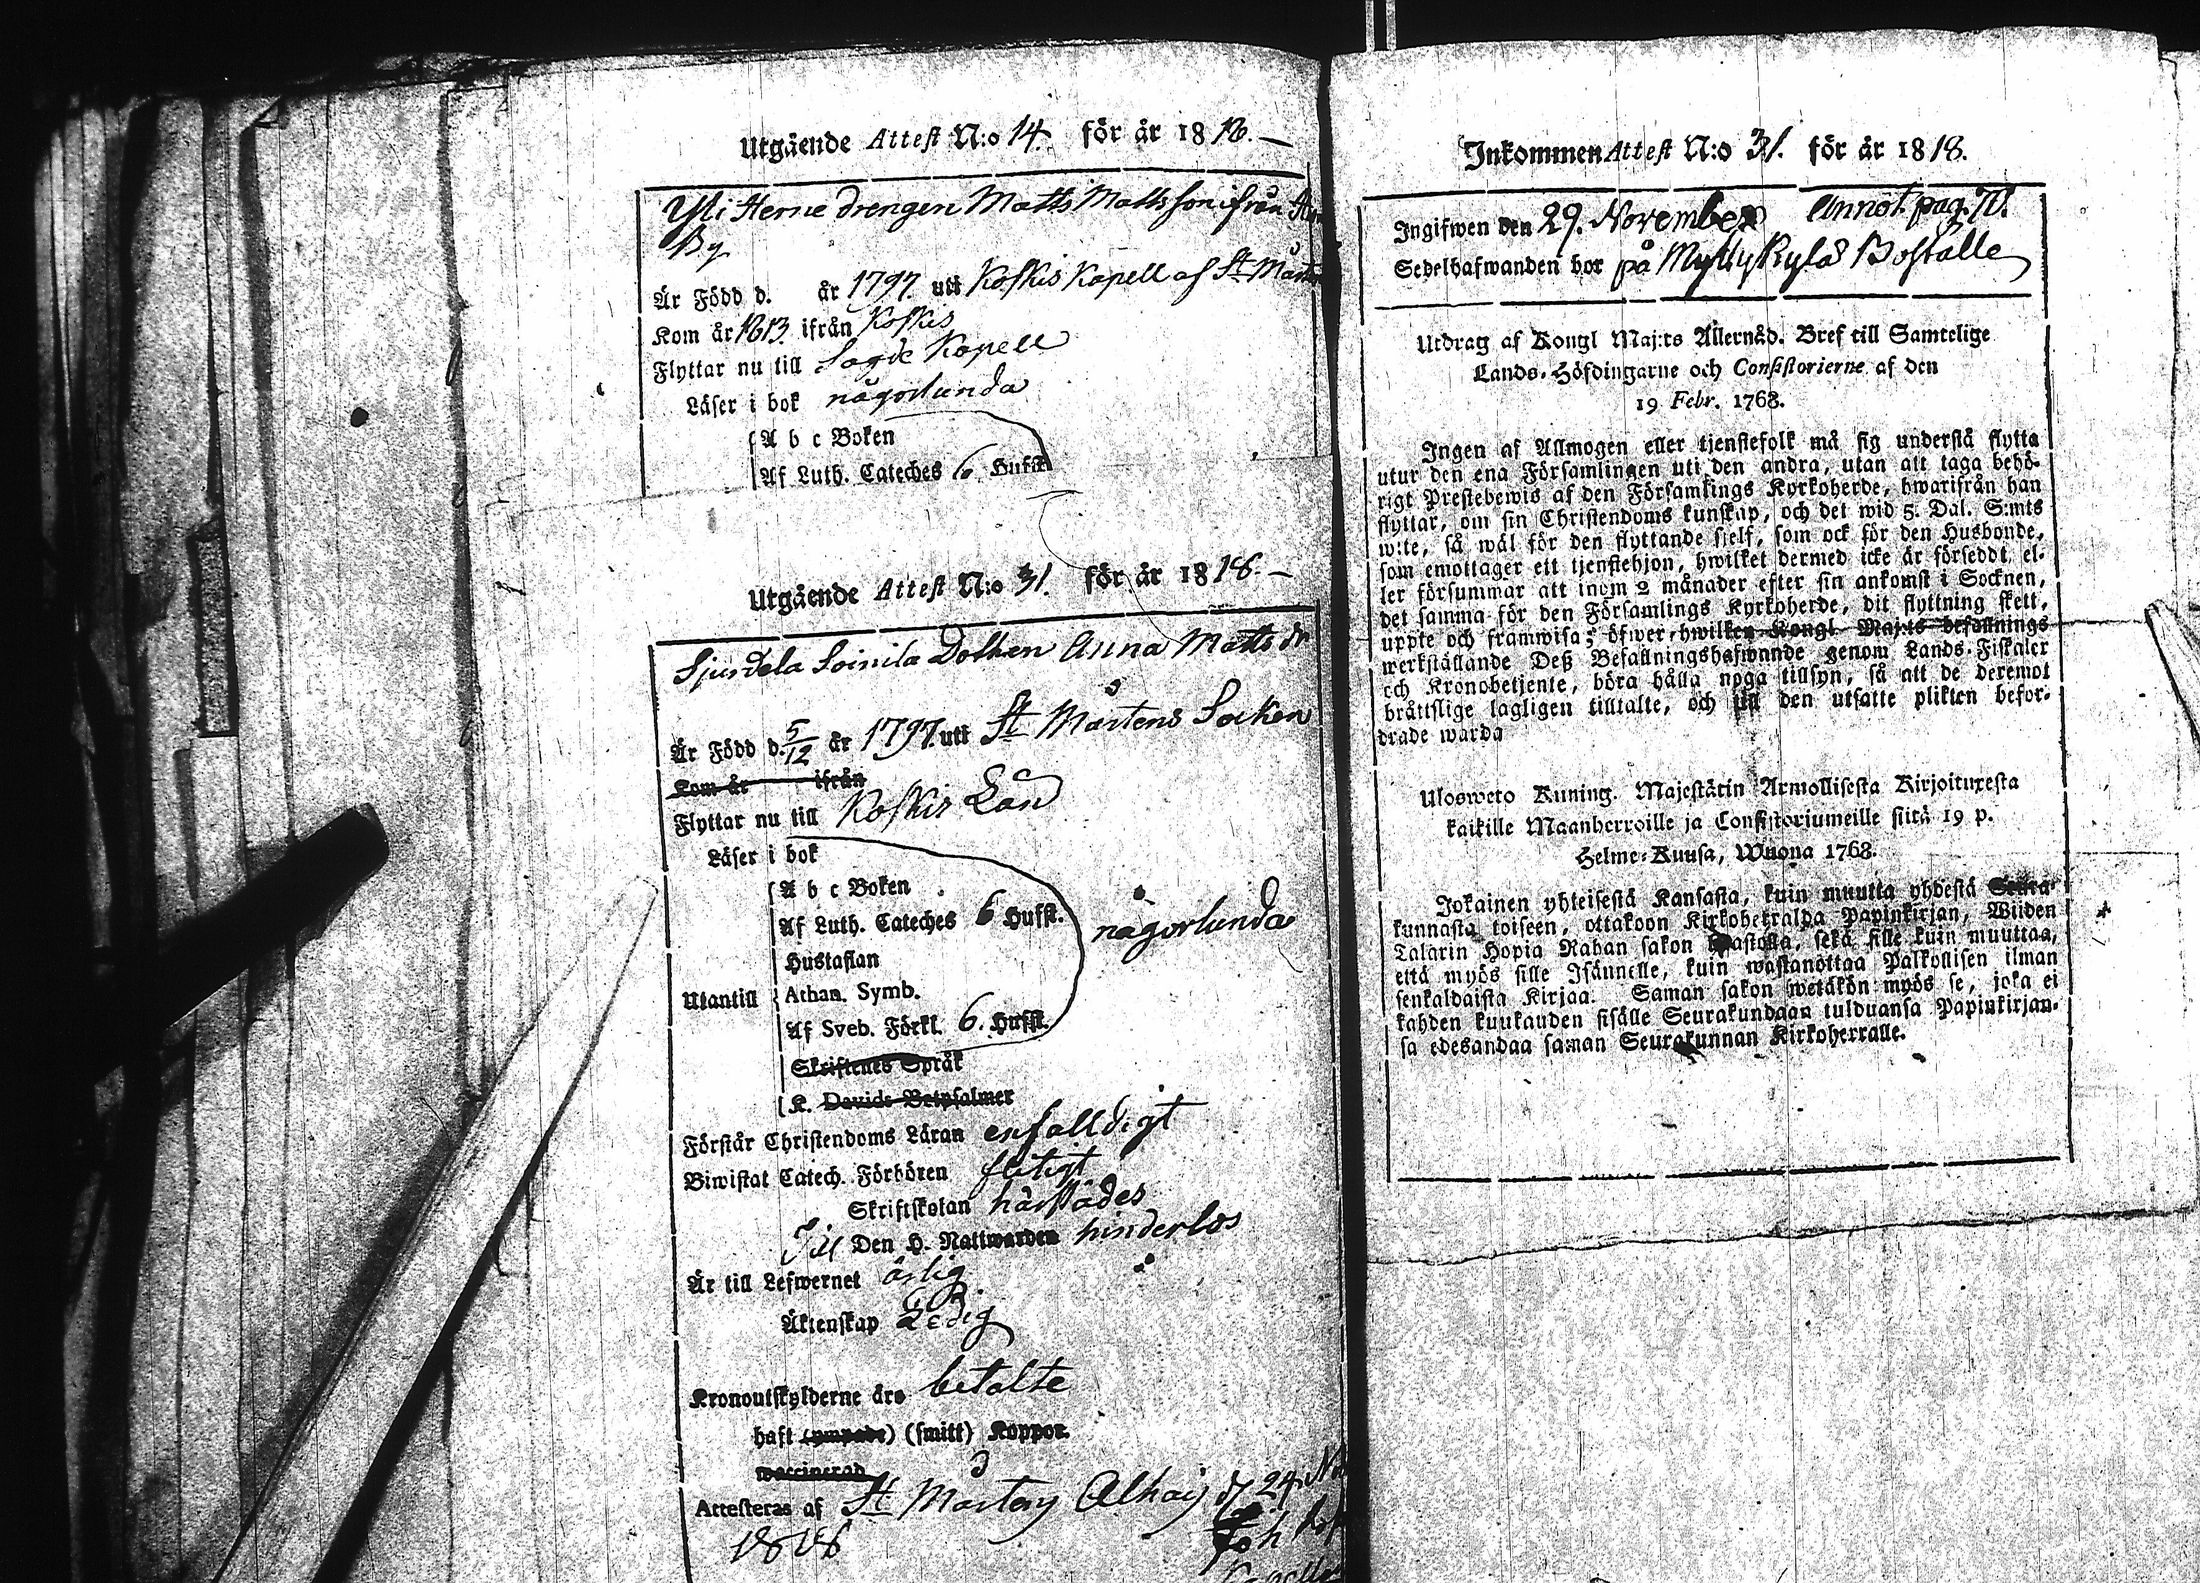 Utgående Attest N:o 14. för år 1818.
Yli Herne drengen Matts Mattsson ifrån
By
Är Född d. år 1797. utt Koskis Kapell af St Mårt
Kom år 1813 ifrån Koskis
Flyttar nu till Sagde Kapell
Läser i bok någorlunda
A b c Boken
Af Luth. Cateches 6. Hufst
Utgående Attest N:o 31. för år 1818.
Sjundela Soinila Dottren Anna Matts dr
Är Född d. 5/12 år 1797. utt St Mårtens Socken
Kom år ifrån
Flyttar nu till Koskis Län
Läser i bok
A b c Boken
Af Luth. Cateches 6 Hufst. någorlunda
Hustaflan
Utantill Athan. Symb.
Af Sveb. Förkl. 6. Hufst.
Skriftenes Språk
K. Davids Botpsalmer
Förstår Christendoms Läran enfalldigt
Biwistat Catech. Förhören flitigt
Skriftskolan härstädes
Till Den H. Nattwarden hinderlös
Är till Lefwernet ärlig
Äktenskap Ledig
Kronoutskylderne äro betalte
haft (ympade) (smitt) Koppor.
vaccinerad
Attesteras af St Mårtens d 24 No
1818 Joh
Kapellan
Inkommen Attest N:o 31. för år 1818.
Ingifwen den 29. November Annot. pag. 70.
Sedelhafwanden bor på Myllykylä Boställe
Utdrag af Kongl Maj:ts Allernåd. Bref till Samtelige
Lands-Höfdingarne och Consistorierne af den
19 Febr. 1768.
Ingen af Allmogen eller tjenstefolk må sig understå flytta
utur den ena Församlingen uti den andra, utan att taga behö-
rigt Prestebewis af den Församlings Kyrkoherde, hwarifrån han
flyttar, om sin Christendoms kunskap, och det wid 5. Dal. S:mts
w:te, så wäl för den flyttande sielf, som ock för den Husbonde,
som emottager ett tjenstehjon, hwilket dermed icke är försedt, el-
ler försummar att inom 2 månader efter sin ankomst i Socknen,
det samma för den Församlings Kyrkoherde, dit flyttning skett,
uppte och framwisa; öfwer hwilken Kongl Maj:ts befallnings
werkställande Deß Befallningshafwande genom Lands-Fiskaler
och Kronobetjente, böra hålla noga tillsyn, så att de deremot
bråttslige lagligen tilltalte, och till den utsatte plikten befor-
drade warda
Ulosweto Kuning. Majestätin Armollisesta Kirjoituxesta
kaikille Maanherroille ja Consistoriumeille siitä 19 p.
Helme-Kuusa, Wuona 1768.
Jokainen yhteisestä Kansasta, kuin muutta yhdestä Seura-
kunnasta toiseen, ottakoon Kirkoherralda Papinkirjan, Wiiden
Talarin Hopia Rahan sakon haastolla, sekä sille kuin muuttaa,
että myös sille Isännelle, kuin wastanottaa Palkollisen ilman
senkaldaista Kirjaa. Saman sakon wetäkön myös se, joka ei
kahden kuukauden sisälle Seurakundaan tulduansa Papinkirjan-
sa edesandaa saman Seurakunnan Kirkoherralle.